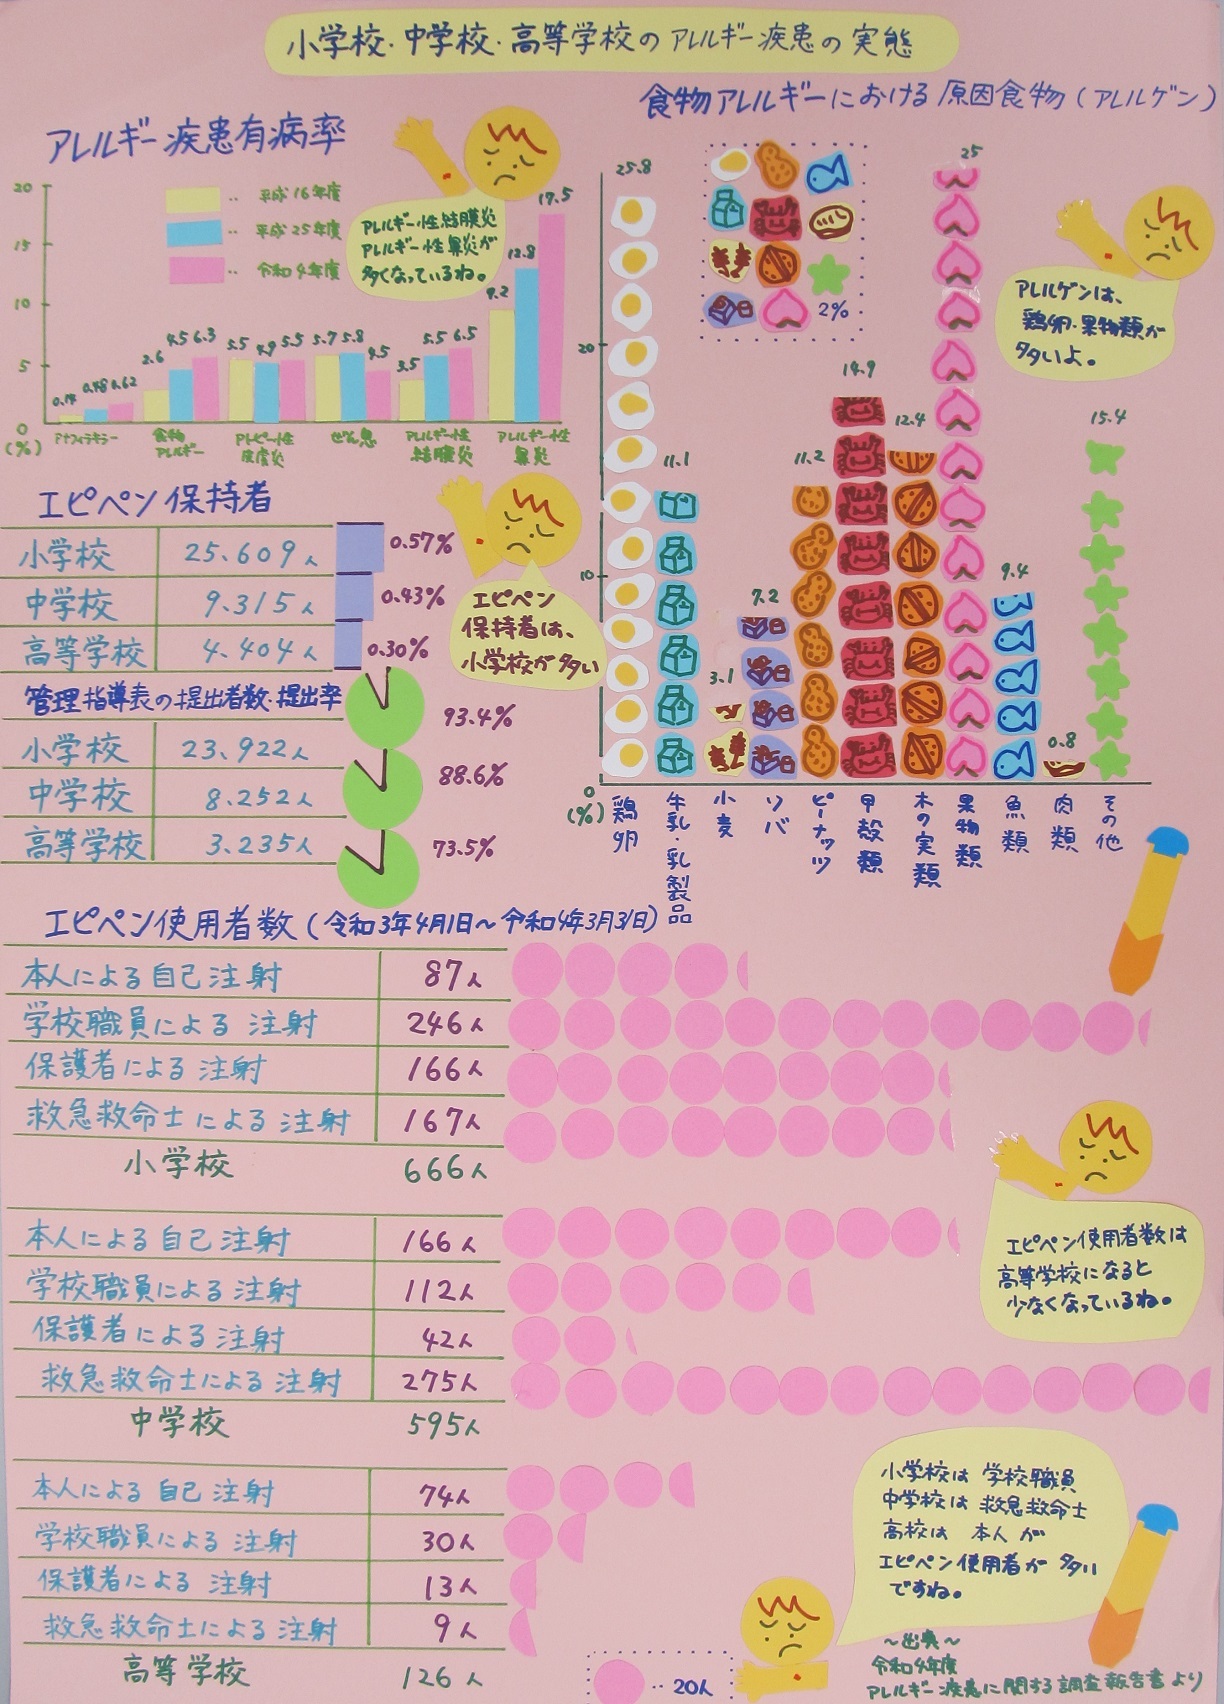 小学校・中学校・高等学校のアレルギー疾患の実態
アレルギー疾患有病率
20
15
10
5
0
(%)
‥平成16年度
‥平成25年度
‥令和4年度
アレルギー性結膜炎
アレルギー性鼻炎が
多くなっているね。
0.14 0.48 0.62
2.6 4.5 6.3
5.5 4.9 5.5
5.7 5.8 4.5
3.5 5.5 6.5
9.2 12.8 17.5
アナフィラキシー
食物
アレルギー
アトピー性
皮膚炎
ぜん息
アレルギー性
結膜炎
アレルギー性
鼻炎
食物アレルギーにおける原因食物(アレルゲン)
2%
20
10
0
(%)
25.8
11.1
3.1
7.2
11.2
14.9
12.4
25
9.4
0.8
15.4
鶏卵
牛乳・乳製品
小麦
ソバ
ピーナッツ
甲殻類
木の実類
果物類
魚類
肉類
その他
アレルゲンは、
鶏卵・果物類が
多いよ。
エピペン保持者
小学校 25.609人 0.57%
中学校 9.315人 0.43%
高等学校 4.404人 0.30%
エピペン
保持者は、
小学校が多い
管理指導表の提出者数・提出率
小学校 23.922人 93.4%
中学校 8.252人 88.6%
高等学校 3.235人 73.5%
エピペン使用者数(令和3年4月1日~令和4年3月31日)
本人による自己注射 87人
学校職員による注射 246人
保護者による注射 166人
救急救命士による注射 167人
小学校 666人
本人による自己注射 166人
学校職員による注射 112人
保護者による注射 42人
救急救命士による注射 275人
中学校 595人
エピペン使用者数は
高等学校になると
少なくなっているね。
本人による自己注射 74人
学校職員による注射 30人
保護者による注射 13人
救急救命士による注射 9人
高等学校 126人
‥20人
小学校は学校職員
中学校は救急救命士
高校は本人が
エピペン使用者が多い
ですね。
~出典~
令和4年度
アレルギー疾患に関する調査報告書より